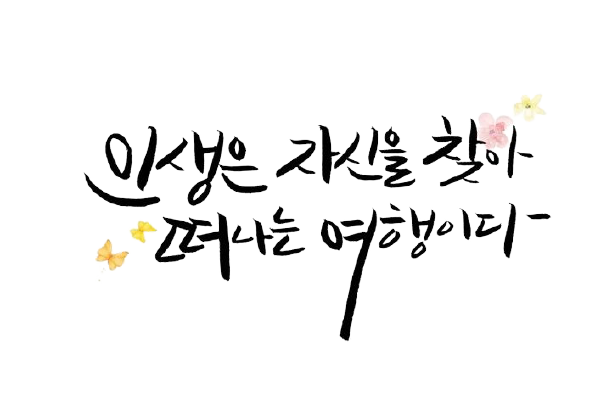 인생은 자신을 찾아
떠나는 여행이다